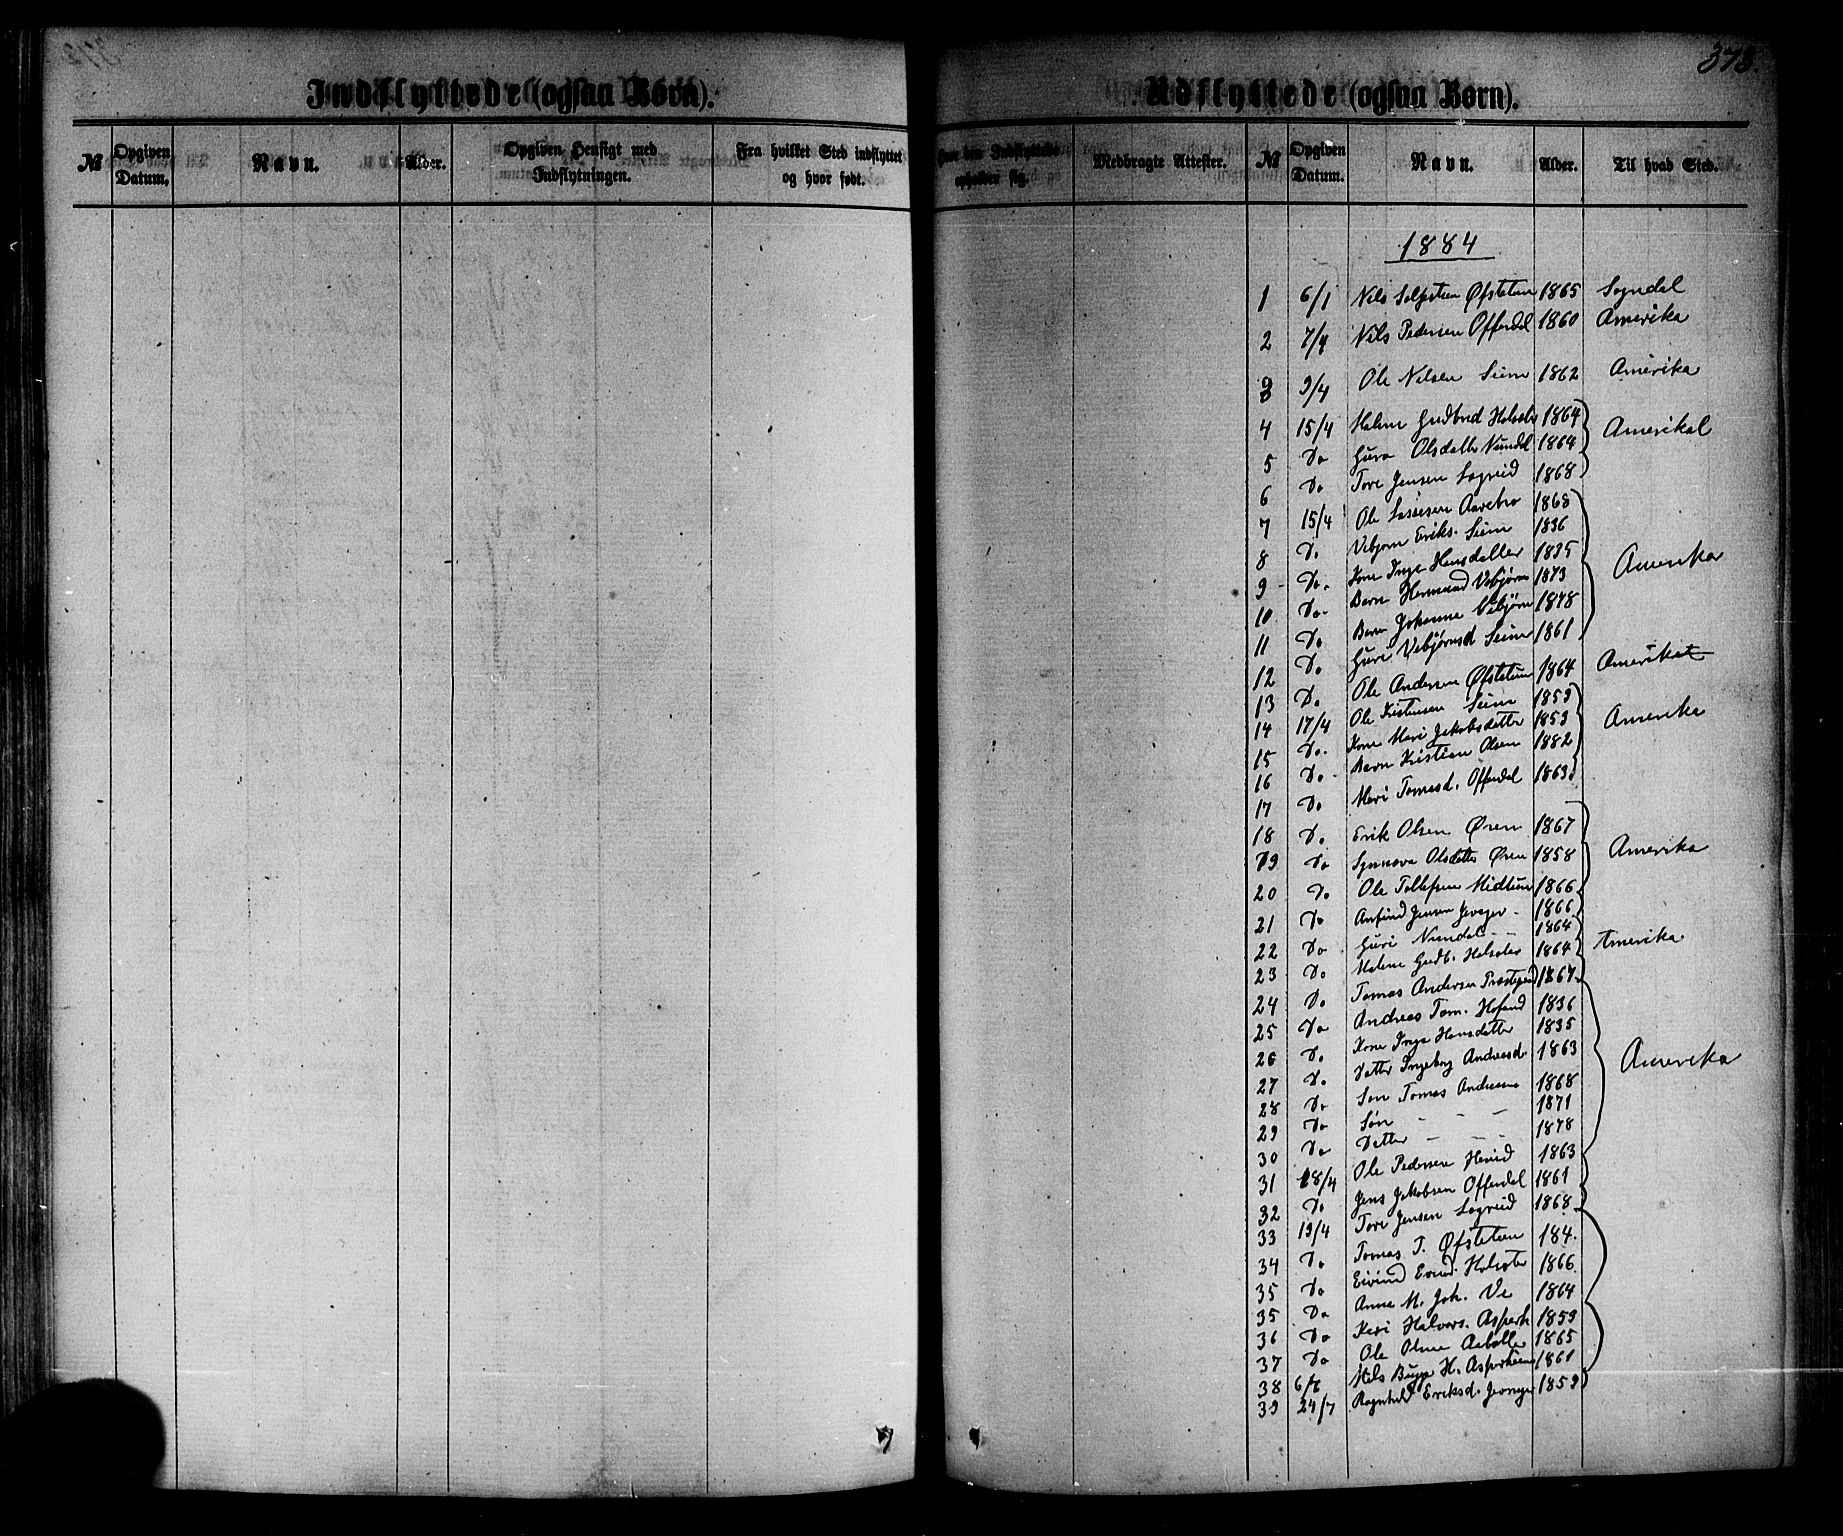 373.
Indflyttede (ogsaa Børn).
№ Opgiven Datum. Navn. Alder. Opgiven Hensigt med Indflytningen. Fra hvilket Sted indflyttet og hvor født.
Udflyttede (ogsaa Børn).
Hvor den Indflyttede opholder sig. Medbragte Attester. № Opgiven Datum. Navn. Alder. Til hvad Sted.
1884
1 6/1 Nils Øfstetun 1865 Sogndal
2 7/4 Nils Pedersen Offerdal 1860 Amerika
3 9/4 Ole Nilsen Seim 1862 Amerika
4 15/4 Malene Gudbrd 1864 Amerika
5 Do Guro Olsdatter Nundal 1864
6 Do Tore Jensen Sogreid 1868
7 15/4 Ole Lassesen Aarebro 1868
8 Do Vebjørn Eriks. Seim 1836
9 Do. Kone Inga Hansdatter 1835 Amerika
10 Do. Barn Hermund Vebjørns 1873
11 Do Barn Johanne Vebjørn 1878
12 Do Guri Vebjørnsd Seim 1861
13 Do. Ole Andersen Øfstetun 1864 Amerika
14 17/4 Ole Kristensen Seim 1859
15 Do. Kone Mari Jakobsdatter 1859 Amerika
16 Do. Barn Kristian Olsen 1882
17 Do Mari Tomasd. Offerdal 1863
18 Do. Erik Olsen Øren 1867
19 Do Synnova Olsdatter Øren 1858 Amerika
20 Do Ole Tollefsen Midtun 1866
21 Do Anfind Jensen 1866
22 Do Guri Nundal 1864 Amerika
23 Do Malene Gudb. 1864
24 Do. Tomas Andersen 1867
25 Do Andreas Tom. Hofand 1836
26 Do. Kone Inga Hansdatter 1835
27 Do. Datter Ingeborg Andreasd. 1863 Amerika
28 Do Søn Tomas Andreasen 1868
29 Do Søn - - - 1871
30 Do Datter - - - 1878
31 18/4 Ole Pedersen 1863
32 Do Jens Jakobsen Offerdal 1861
33 19/4 Tore Jensen Sogreid 1868
34 Do Tomas T. Øfstetun 184.
35 Do Eivind 1866
35 Do Anna M. Joh. Ve 1864
36 Do Kari Halvors. 1859
37 Do Ole Olsen 1865
38 Nils Bugge H. Asperheim 1861
39 24/7 Ragnhild Eriksd. 1859